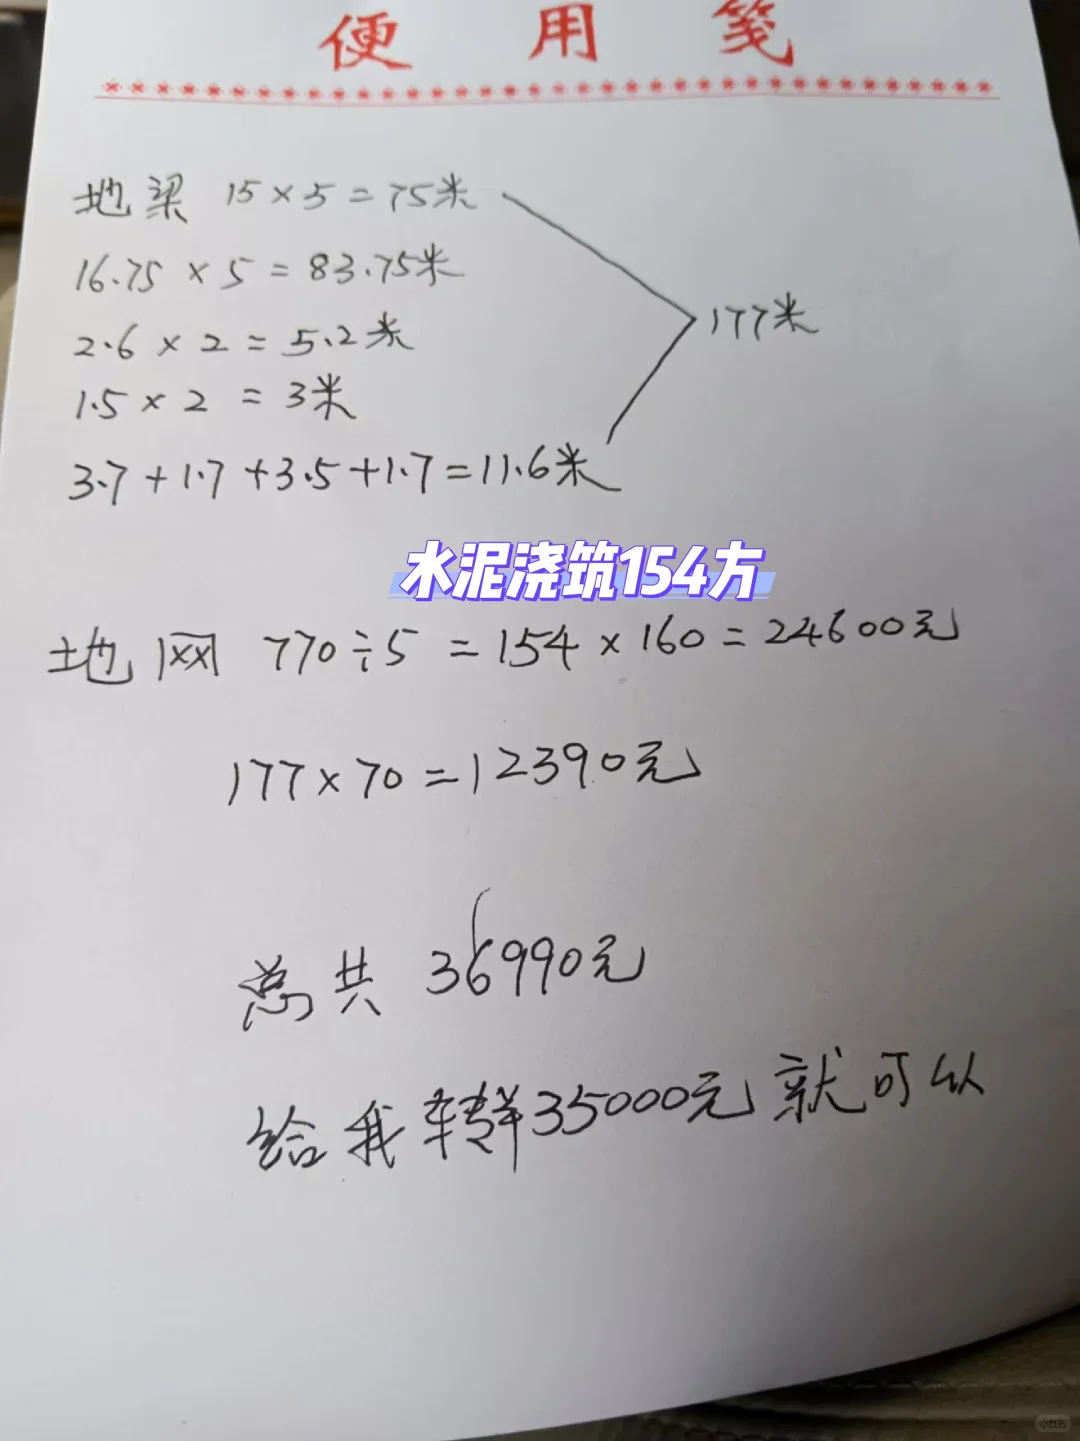 便用笺
地梁 15×5=75米
16.75×5=83.75米
177米
2.6×2=5.2米
1.5×2=3米
3.7+1.7+3.5+1.7=11.6米
水泥浇筑154方
地网 770÷5=154×160=24600元
177×70=12390元
总共 36990元
给我转35000元就可以
小红书